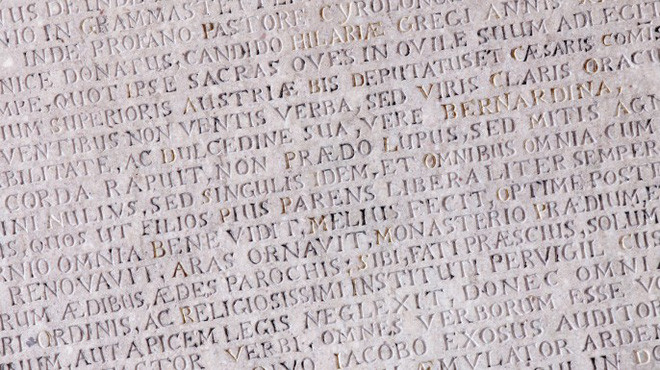 NIO IN GRAMMASTETTEN, CYROLONGO
INDE PROIANO PASTORE, HILARIÆ GREGI ANNIS
NICE DONATUS, CANDIDO OVES IN OVILE SUUM ADLEGIT
MPE, QUOT IPSE SACRAS DEPUTATUS ET CÆSARIS COMIS
IUM SUPERIORIS AUSTRIÆ BIS VIRIS CLARIS ORACU
VENTIBUS NON VENTIS VERBA, SED BERNARDINA,
BILITATE, AC DULCEDINE SUA, VERE LUPUS, SED MITIS AGN
CORDA RAPUIT, NON PRÆDO OMNIBUS OMNIA CUM
INI NULLIUS, SED SINGULIS IDEM, ET LIBERALITER SEMPER
QUOS UT FILIOS PIUS PARENS FECIT, OPTIME POSTE
RNIO OMNIA BENE VIDIT, MELIUS MONASTERIO PRÆDIUM, E
RENOVAVIT, ARAS ORNAVIT, SIBI, FATI PRÆSCIUS, SOLUM
RUM ÆDIBUS, ÆDES PAROCHIS, INSTITUTI PERVIGIL CUS
RI ORDINIS, AC RELIGIOSISSIMI NEGLEXIT DONEC OMNIA
UM, AUT APICEM LEGIS OMNES VERBORUM ESSE VO
FACTOR VERBI, JACOBO EXOSUS AUDITOR
ÆMULATOR ARDEN
IN DO